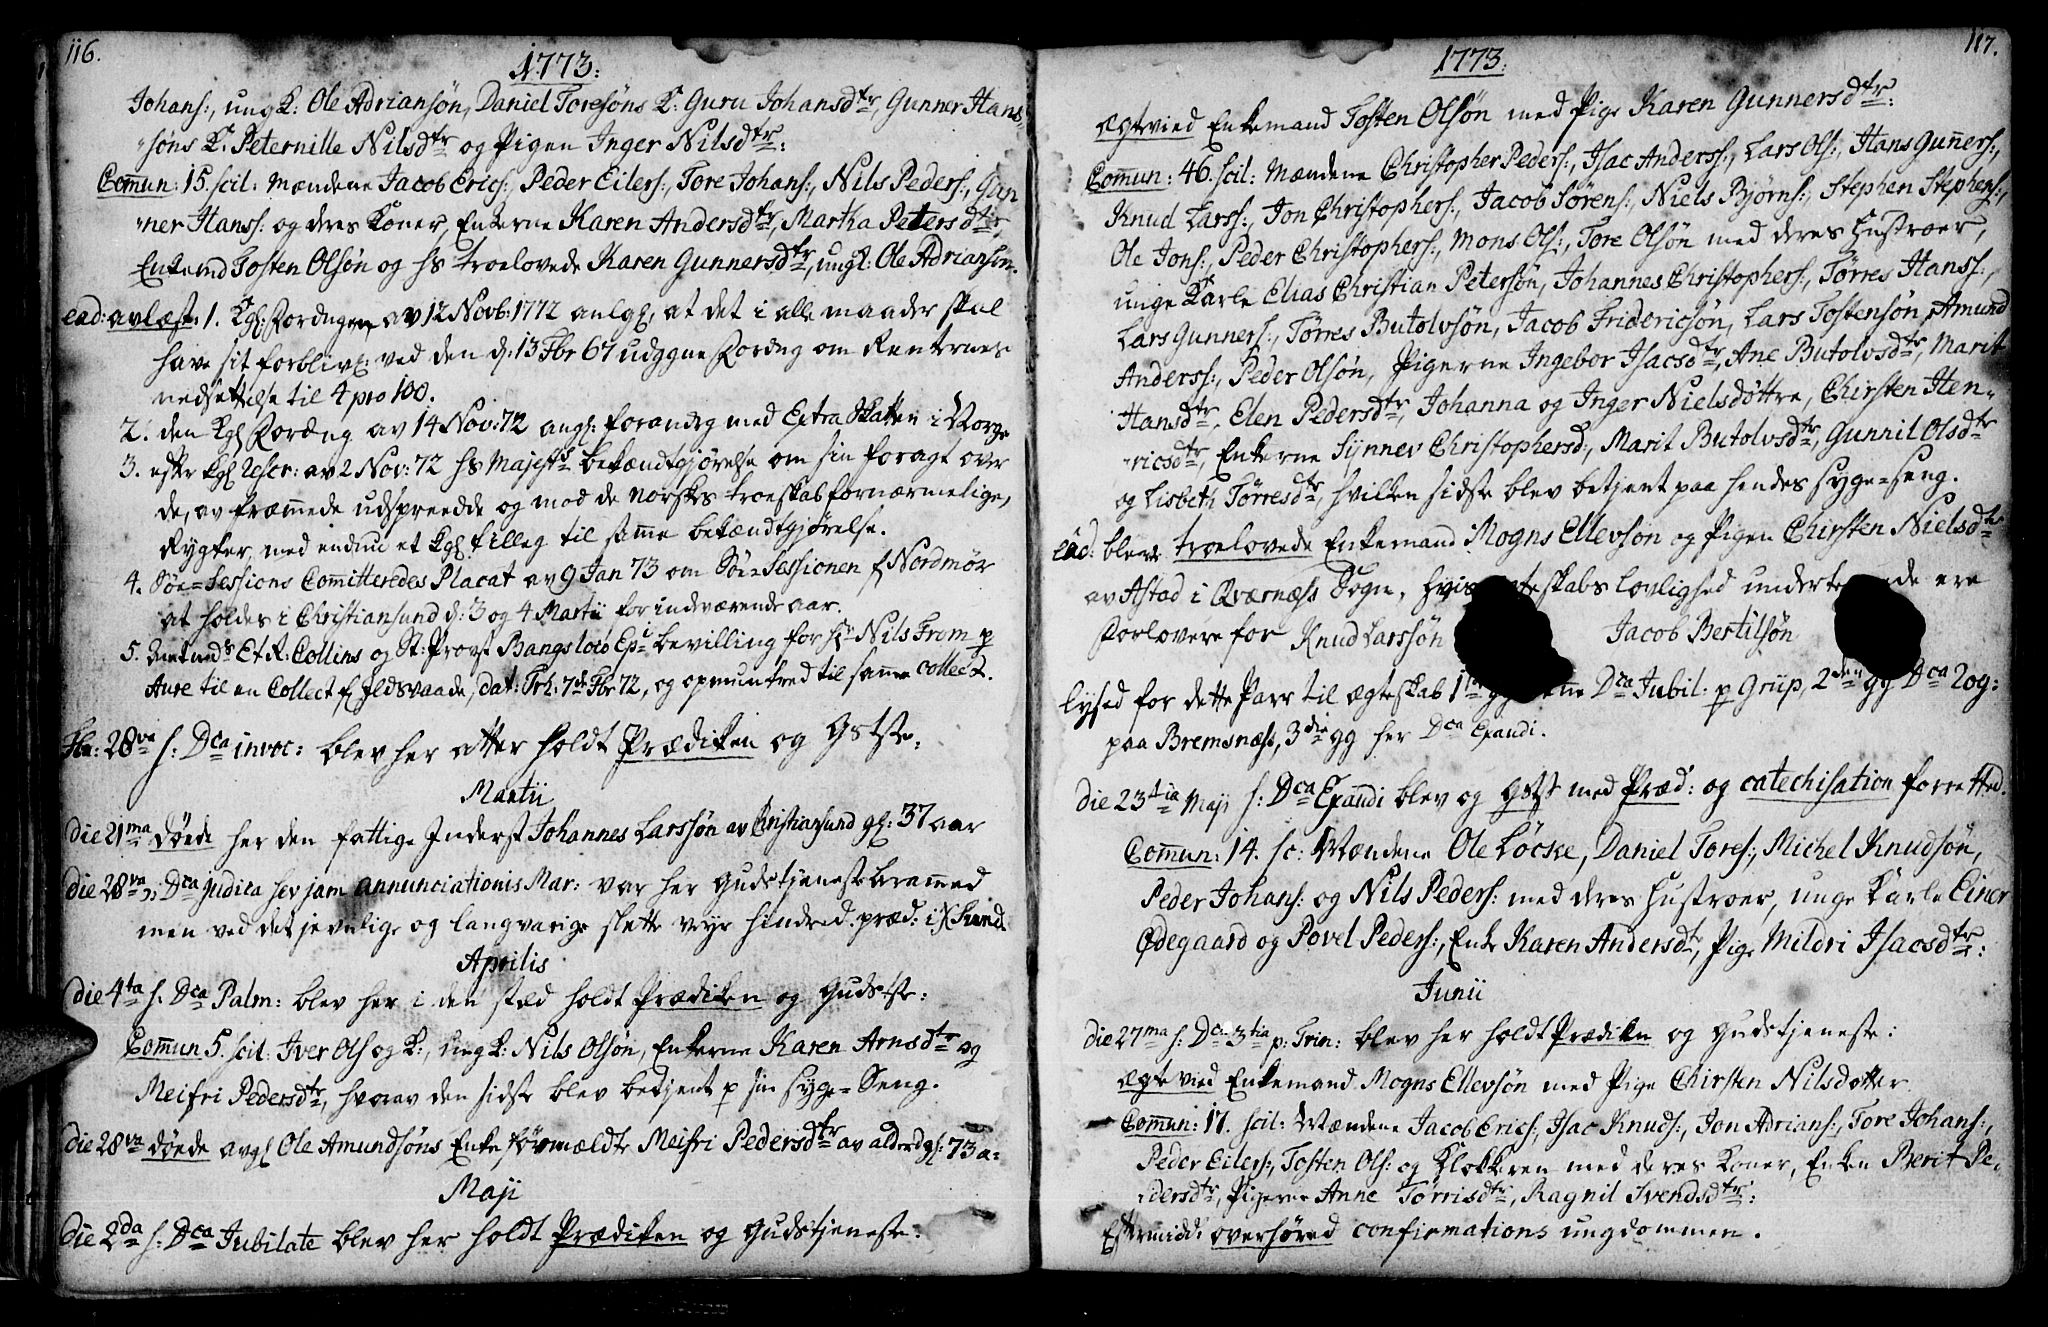 116.
1773:
Johans:, ung K: Ole Adriansøn, Daniel Toresøns K: Guru Johansdtr, Gunner Hans-
søns K: Peternille Nilsdtr og Pigen Inger Nilsdtr:
Com̄un: 15. scil: Mændene Jacob Erics:, Peder Eilers:, Tore Johans:, Nils Peders:, Gun
ner Hanss: og deres Koner, Enkerne Karen Andersdtr, Martha Petersdtr,
Enkemd Tosten Olsøn og hs troelovede Karen Gunnersdtr, ungk: Ole Adriansøn.
ead: avlæst. 1. Kgl: Fordngen av 12 Novb: 1772 anlg, at det i alle maader skal
have sit forbliv ved den d: 13 Fbr 67 udggne Fordng om Renternes
nedsettelse til 4 pro 100.
2. den Kgl Fordng av 14 Nov: 72 angl: forandrg med Extra Skatten i Norge
3. efter Kgl Rescr: av 2 Nov: 72 Hs Majests bekændtgjørelse om sin foragt over
de, av fræm̄ede udspreedde og mod de Norskes troeskab fornærmelige,
Rygter, med endnu et Kgl tilleg til sam̄e bekændtgjørelse.
4. Søe-Sessions Committeredes Placat av 9 Jan 73 om Søe-Sessionen f Nordmør
at holdes i Christiansund d: 3 og 4 Martii for indværende aar.
5. Amtmds Et. R: Collins og St: Provst Bangs loco Epi bevilling for Hr Nils From p
Aure til en Collect f Ildsvaade, dat: Trh: 7de Fbr 72, og opmuntred til sam̄e collect.
Fbr: 28va s: Dca invoc: blev her atter holdt Prædiken og Gstste.
Martii
die 21ma døede her den fattige Inderst Johannes Larssøn av Christiansund gl: 37 aar
die 28va s: Dca Judica sev jam annunciationis Mar: var her Gudstjeneste beram̄ed
men ved det jevnlige og langvarige slette veyr hindred. præd: i X Sund.
Aprilis
die 4ta s: Dca Palm: blev her i den sted holdt Prædiken og Gudstste:
Com̄un 5. scil: Iver Ols og K:, ung K: Nils Olsøn, Enkerne Karen Arnsdtr og
Meifri Pedersdtr, hvorav den sidste blev betjent p sin syge-Seng.
die 28va døede avgl Ole Amundsøns Enke forrmældte Meifri Pedersdtr av alderd gl: 73 a:
Maji
die 2da s: Dca Jubilate blev her holdt Prædiken og Gudstjeneste:
117.
1773.
ægtevied Enkemand Tosten Olsøn med Pige Karen Gunnersdtr:
Com̄un: 46. scil: Mændene Christopher Peders:, Isac Anderss:, Lars Ols:, Hans Gun̄ers:,
Knud Larss:, Jon Christophers:, Jacob Sørens:, Niels Bjørns:, Stephen Stephens:,
Ole Jons:, Peder Christophers:, Mons Ols:, Tore Olsøn med deres Hustroer,
unge Karle Elias Christian Petersøn, Johannes Christophers:, Tørres Hanss:,
Lars Gunners:, Tørres Butolvsøn, Jacob Fridericsøn, Lars Tostensøn, Amund
Anderss:, Peder Olsøn, Pigerne Ingebor Isacsdtr, Ane Butolvsdtr, Marit
Hansdtr, Elen Pedersdtr, Johanna og Inger Nielsdøttre, Chirsten Hen-
ricsdtr, Enkerne Synnev Christophersd:, Marit Butolvsdtr, Gunnil Olsdtr
og Lisbeth Tørresdtr, hvilken sidste blev betjent paa hendes syge-seng.
ead: blev troelovede Enkemand Mogns Ellevsøn og Pigen Chirsten Nielsdtr
av Astad i Qværnæss Sogn, hvis skabs lovlighed underte de ere
Forlovere for Knud Larssøn Jacob Bertilsøn
lysed for dette Parr til ægteskab 1te gg Dca Jubil: p Griip, 2den gg Dca Rog:
paa Bremsnæss, 3die gg her Dca Exaudi.
die 23tia Maji s: Dca Exaudi blev og Gstst med Præd: og catechisation forretted.
Com̄un: 14. sc: Mændene Ole Løcke, Daniel Tores:, Michel Knudsøn,
Peder Johans: og Nils Peders: med deres Hustroer, unge Karle Einer
Ødegaard og Povel Peders:, Enke Karen Andersdtr, Pige Mildri Isacsdtr:
Junii
die 27ma s: Dca 3tia p: Trin: blev her holdt Prædiken og Gudstjeneste:
ægtevied Enkemand Mogns Ellevsøn med Pige Chirsten Nilsdotter.
Com̄un: 17. scil: Mændene Jacob Erics:, Isac Knuds:, Jon Adrians:, Tore Johans:,
Peder Eilers:, Tosten Ols: og Klokkeren med deres Koner, Enken Berit Pe-
dersdtr, Pigerne Anne Tørrisdtr, Ragnil Svendsdtr:
Eftermidd: overhøred confirmations ungdommen.